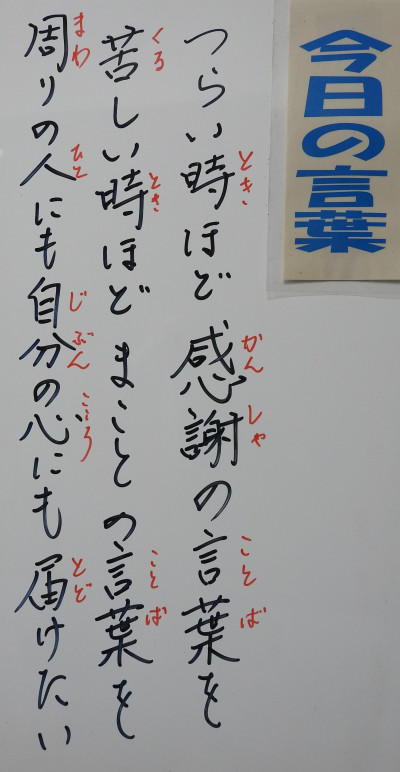 今日の言葉
つらい時ほど 感謝の言葉を
とき かんしゃ ことば
苦しい時ほど まことの言葉を
くる とき ことば
周りの人にも自分の心にも 届けたい
まわ ひと じぶん こころ とど